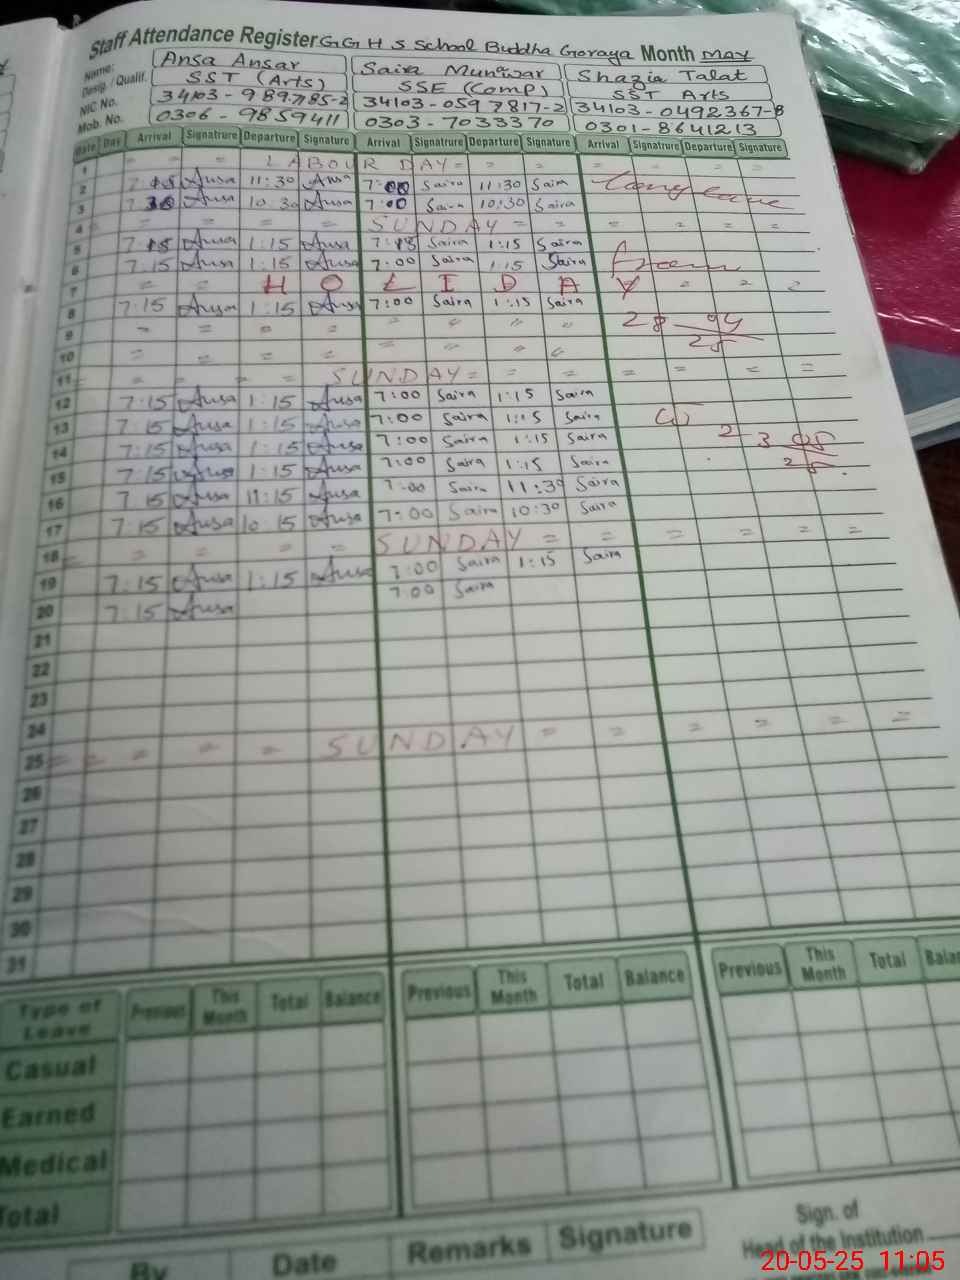 Staff Attendance Register GGHS School Buddha Goraya Month MAY
Name: Ansa Ansar Saira Munawar Shazia Talat
Desig. / Qualif. SST (Arts) SSE (Comp) SST Arts
NIC No. 34103-9897185-2 34103-0597817-2 34103-0492367-8
Mob. No. 0306-9859411 0303-7033370 0301-8641213
Date Day Arrival Signatrure Departure Signature Arrival Signatrure Departure Signature Arrival Signatrure Departure Signature
1 = = = LABOUR DAY = = = = = =
2 Ausa 11:30 Ausa 7:00 Saira 11:30 Saira Long leave
3 Ausa 10:30 Ausa 7:00 Saira 10:30 Saira
4 = = = = SUNDAY = = = = = =
5 7:15 Ausa 1:15 Ausa Saira 1:15 Saira
6 7:15 Ausa 1:15 Ausa 7:00 Saira 1:15 Saira From
7 = = HOLIDAY = = =
8 7:15 Ausa 1:15 Ausa 7:00 Saira 1:15 Saira
9 = = = = " " " " 28 94/25
10 = = = = " " " "
11 = = = = SUNDAY = = = = = = =
12 7:15 Ausa 1:15 Ausa 7:00 Saira 1:15 Saira
13 7:15 Ausa 1:15 Ausa 7:00 Saira 1:15 Saira
14 7:15 Ausa 1:15 Ausa 7:00 Saira 1:15 Saira 2 3
15 7:15 Ausa 1:15 Ausa 7:00 Saira 1:15 Saira
16 7:15 Ausa 11:15 Ausa 7:00 Saira 11:30 Saira
17 7:15 Ausa 10:15 Ausa 7:00 Saira 10:30 Saira
18 = = = = = SUNDAY = = = = = =
19 7:15 Ausa 1:15 Ausa 7:00 Saira 1:15 Saira
20 7:15 Ausa 7:00 Saira
21
22
23
24
25 = = = = = SUNDAY = = = = = =
26
27
28
29
30
31
Type of Leave Previous This Month Total Balance Previous This Month Total Balance Previous This Month Total Balan
Casual
Earned
Medical
Total
By Date Remarks Signature
Sign. of
Head of the Institution
20-05-25 11:05